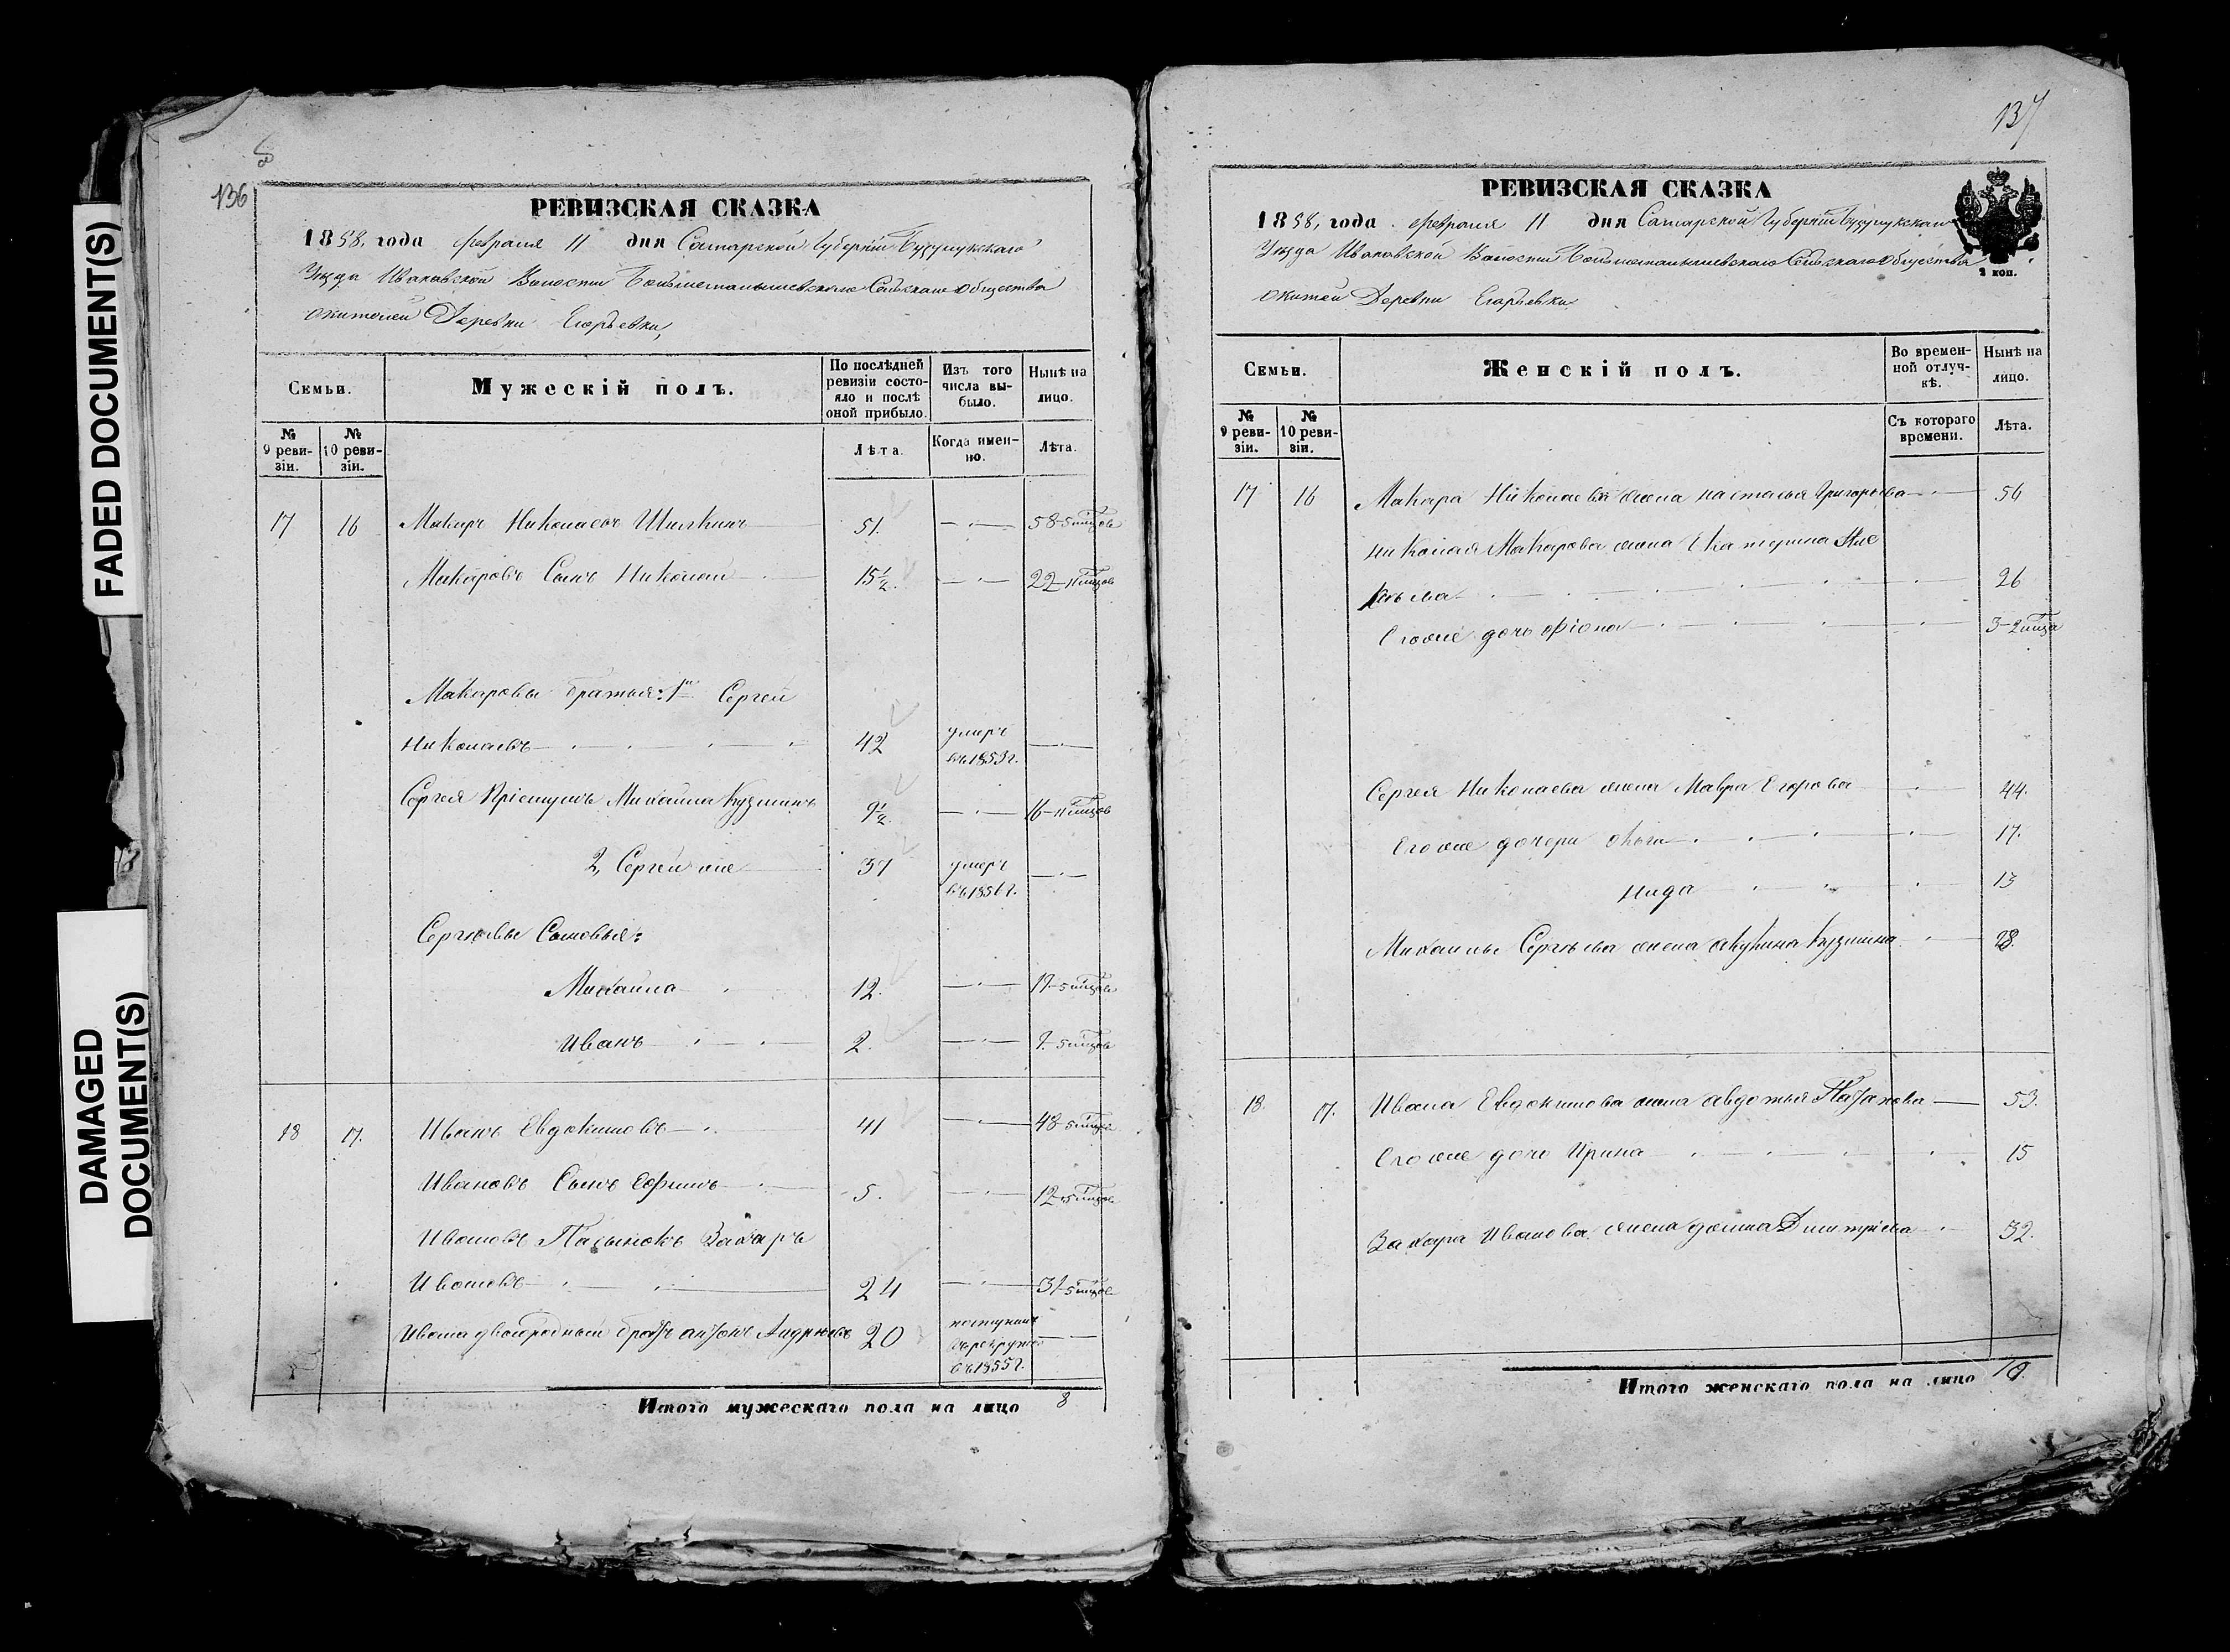 FADED DOCUMENT(S)
DAMAGED
DOCUMENT(S)
136
РЕВИЗСКАЯ СКАЗКА
1858. года февраля 11 дня Самарской Губернии Бузулукскаго
Уезда Волости Сельскаго Общества
Деревни Егорьевки,
Семьи.
Мужескій полъ.
По послѣдней
ревизіи состо-
яло и послѣ
оной прибыло.
Изъ того
числа вы-
было.
Нынѣ на
лицо.
№
9 реви-
зіи.
№
10 реви-
зіи.
Лѣта.
Когда имен-
но.
Лѣта.
17 16 Макаръ Николаевъ Шишкинъ 51. 58-5
Макаровъ Сынъ Николай 15½. 22-11
Макаровы братья: 1й Сергей
Николаевъ 42 умеръ въ 1853 г.
Сергея Пріемушъ Михайла Кузминъ 9½. 16-11
2, Сергей же 37 умеръ въ 1856 г.
Сергѣевы Сыновья:
Михайла 12. 17-5
Иванъ 2. 7-5
18 17. Иванъ Евдокимовъ 41 48-5
Ивановъ Сынъ Ефимъ 5. 12-5
Ивановъ Пасынокъ Захаръ
Ивановъ 24 31-5
Ивана двоюродный братъ антонъ Андреевъ 20 поступилъ
въ рекруты
въ 1855 г.
Итого мужескаго пола на лицо 8
137
РЕВИЗСКАЯ СКАЗКА
1858, года. февраля 11 дня Самарской Губерніи Бузулукскаго
Уезда Волости Сельскаго Общества
Деревни Егорьевки
2 коп.
Семьи.
Женскій полъ.
Во времен-
ной отлуч-
кѣ.
Нынѣ на
лицо.
№
9 реви-
зіи.
№
10 реви-
зіи.
Съ котораго
времени.
Лѣта.
17 16 Макара Николаева жена настасья Григорьева 56
николая Макарова жена Екатерина
26
Егоже дочь фіона 3-2
Сергея Николаева жена Мавра Егорова 44.
Егоже дочери 17.
13
Михайлы Сергѣева жена акулина Кузмина 28.
18. 17. Ивана Евдокимова жена авдотья 53.
Егоже дочь Ирина 15
Захара Иванова жена домна Дмитріева 32.
Итого женскаго пола на лицо 10.